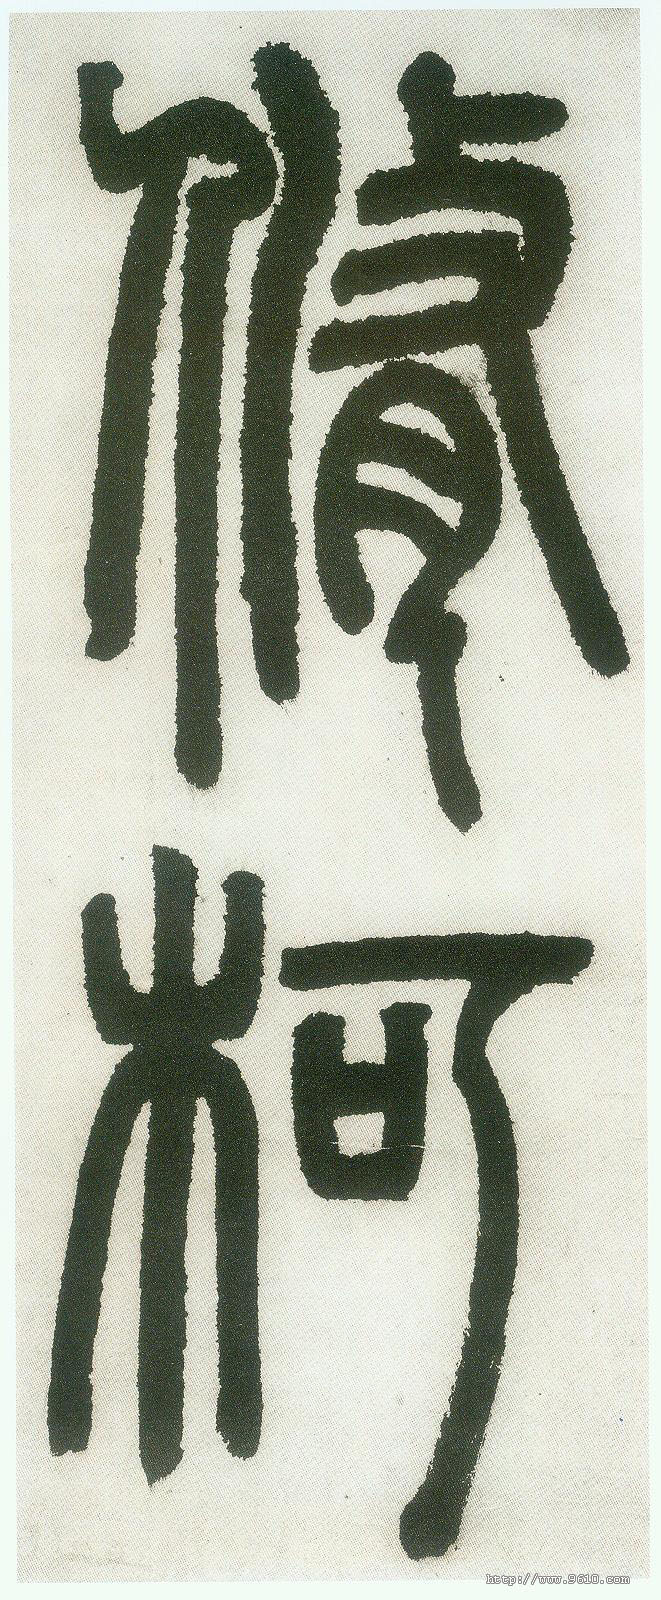 脩
柯
http://www.9610.com